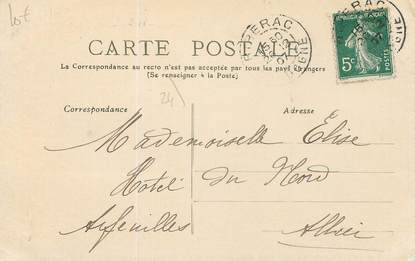 10€
CARTE POSTALE
La Correspondance au recto n'est pas acceptée par tous les pays étrangers
(Se renseigner à la Poste)
Correspondance
Adresse
24
Mademoiselle Élise
Hôtel du Nord
Arfeuilles
Allier
5c
POSTES